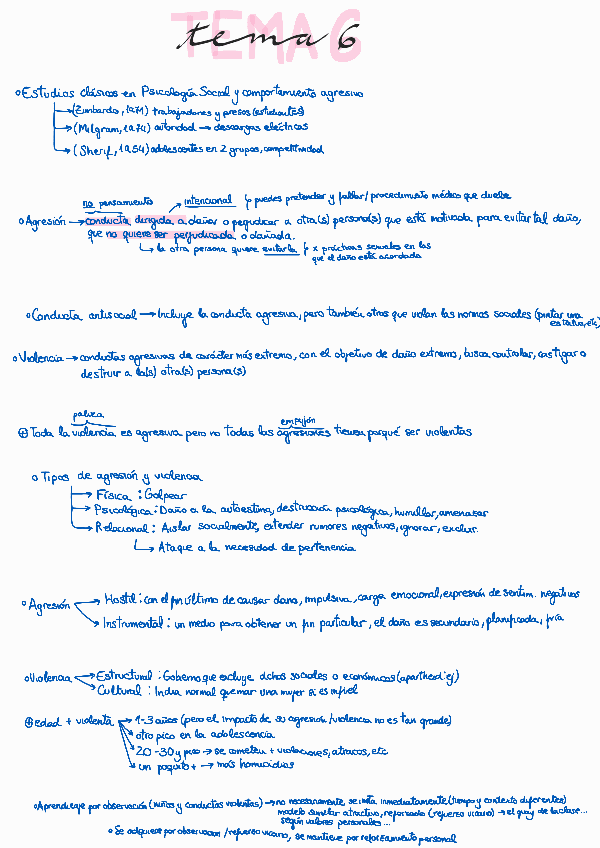 TEMA 6
tema 6
Estudios clásicos en Psicología Social y comportamiento agresivo
→(Zimbardo, 1971) trabajadores y presos (estudiantes)
→(Milgram, 1974) autoridad → descargas eléctricas
→(Sherif, 1954) adolescentes en 2 grupos, competitividad
no pensamiento
intencional
puedes pretender y fallar / procedimiento médico que duele
Agresión → conducta dirigida a dañar o perjudicar a otra(s) persona(s) que está motivada para evitar tal daño,
que no quiere ser perjudicada o dañada.
→ la otra persona quiere evitarla
x prácticas sexuales en las
que el daño está acordado
Conducta antisocial → Incluye la conducta agresiva, pero también otras que violan las normas sociales (pintar una
estatua, etc)
Violencia → conductas agresivas de carácter más extremo, con el objetivo de daño extremo, busca controlar, castigar o
destruir a la(s) otra(s) persona(s)
paliza
empujón
Toda la violencia es agresiva pero no todas las agresiones tienen porqué ser violentas
Tipos de agresión y violencia
→ Física : Golpear
→ Psicológica : Daño a la autoestima, destrucción psicológica, humillar, amenazar
→ Relacional : Aislar socialmente, extender rumores negativos, ignorar, excluir.
→ Ataque a la necesidad de pertenencia
Agresión
→ Hostil : con el fin último de causar daño, impulsiva, carga emocional, expresión de sentim. negativos
→ Instrumental : un medio para obtener un fin particular, el daño es secundario, planificada, fría
Violencia
→ Estructural : Gobierno que excluye dchos sociales o económicos (apartheid ej)
→ Cultural : India normal quemar una mujer si es infiel
edad + violenta
→ 1-3 años (pero el impacto de su agresión/violencia no es tan grande)
otro pico en la adolescencia
20-30 y pico → se cometen + violaciones, atracos, etc
un poquito + → más homicidios
Aprendizaje por observación (niños y conductas violentas) → no necesariamente, se imita inmediatamente (tiempo y contexto diferentes)
modelo similar atractivo, reforzado (refuerzo vicario) → el guay de la clase...
según valores personales...
Se adquiere por observación / refuerzo vicario, se mantiene por reforzamiento personal